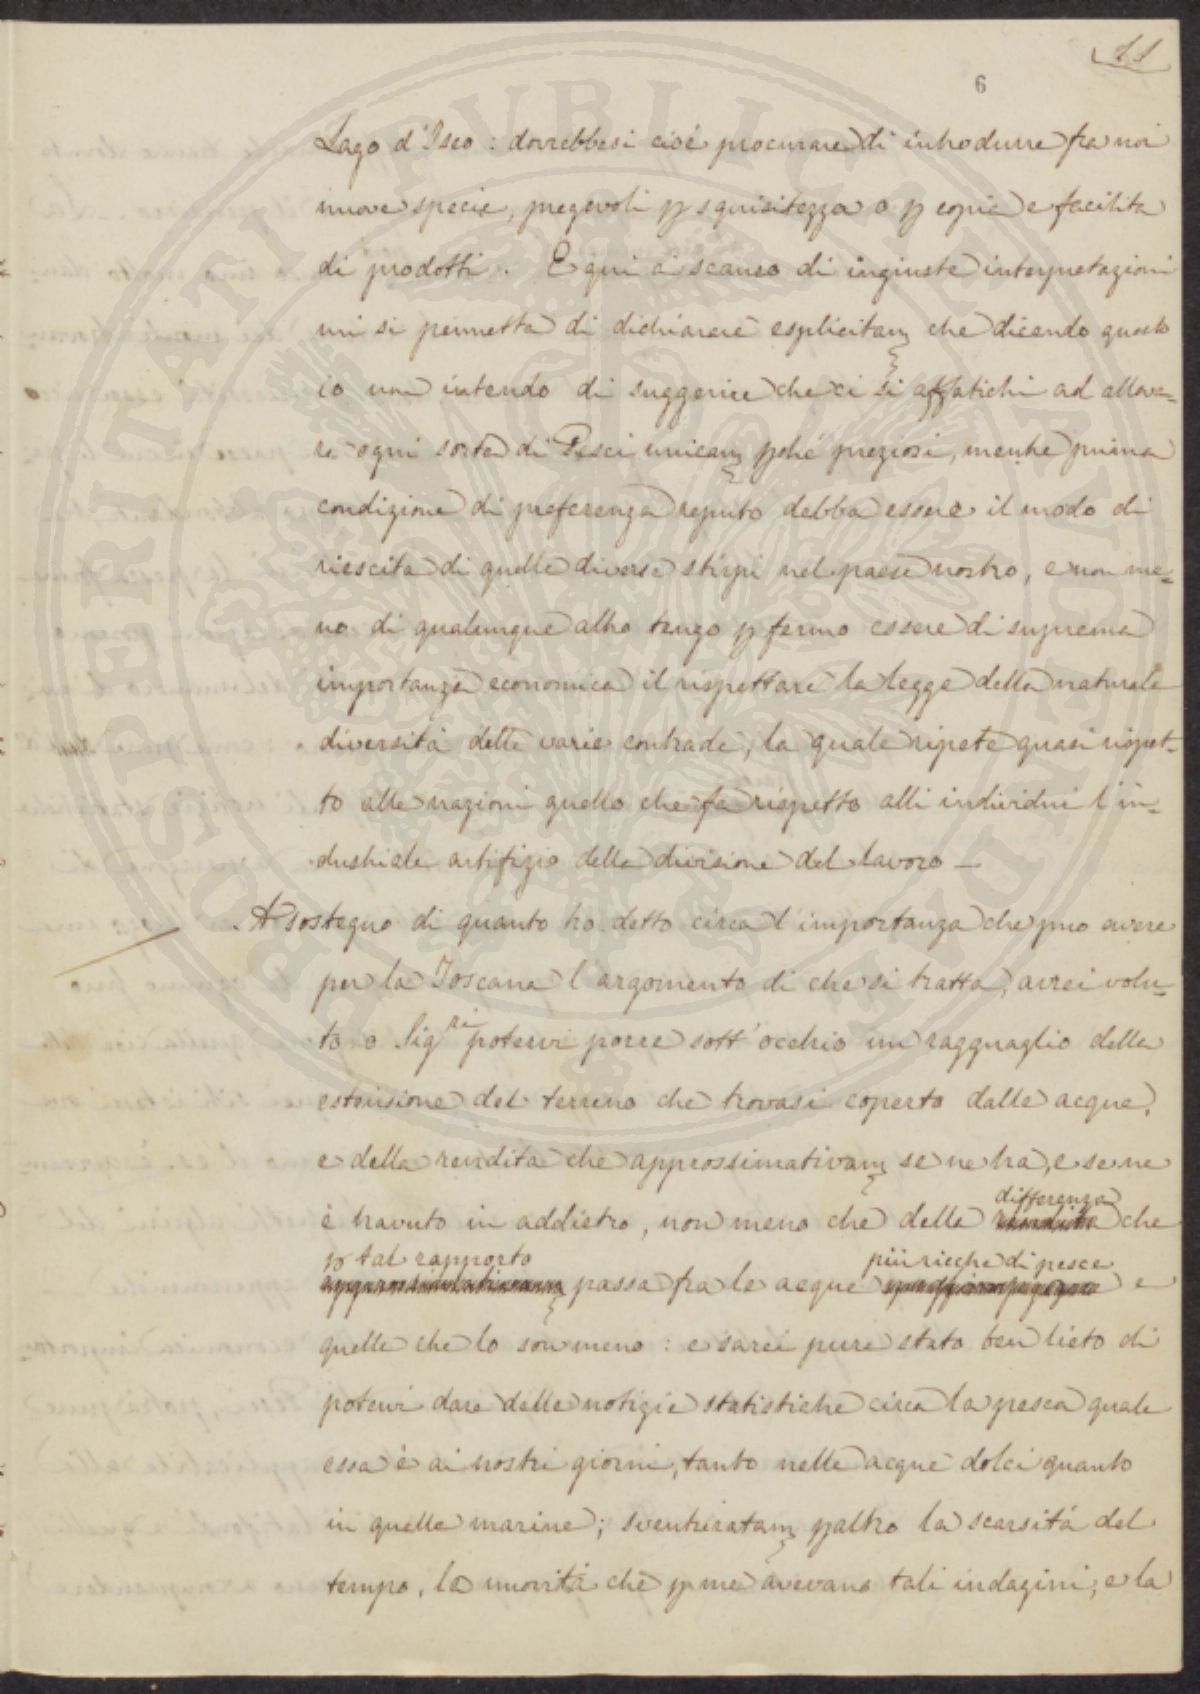 11
6
Lago d'Iseo : dovrebbesi cioè procurare di introdurre fra noi
nuove specie, pregevoli p squisitezza o p copia e facilità
di prodotti. E qui a scanso di ingiuste interpretazioni
mi si permetta di dichiarare esplicitam che dicendo questo
io non intendo di suggerire che ci si affatichi ad alleva=
re ogni sorta di Pesci unicam pchè preziosi, mentre prima
condizione di preferenza reputo debba essere il modo di
riescita di quelle diverse stirpi nel paese nostro, e non me=
no di qualunque altro tengo p fermo essere di suprema
importanza economica il rispettare la legge della naturale
diversità delle varie contrade, la quale ripete quasi rispet=
to alle nazioni quello che fa rispetto alli individui l'in=
dustriale artifizio della divisione del lavoro —
A sostegno di quanto ho detto circa l'importanza che può avere
per la Toscana l'argomento di che si tratta, avrei volu=
to o Sigri potervi porre sott'occhio un ragguaglio della
estensione del terreno che trovasi coperto dalle acque,
e della rendita che approssimativam se ne ha, e se ne
differenza
è travuto in addietro, non meno che della rendita che
p tal rapporto più ricche di pesce
approssimativam passa fra le acque e
quelle che lo son meno : e sarei pure stato ben lieto di
potervi dare delle notizie statistiche circa la pesca quale
essa è ai nostri giorni, tanto nelle acque dolci quanto
in quelle marine; sventuratam paltro la scarsità del
tempo, la novità che p me avevano tali indagini, e la